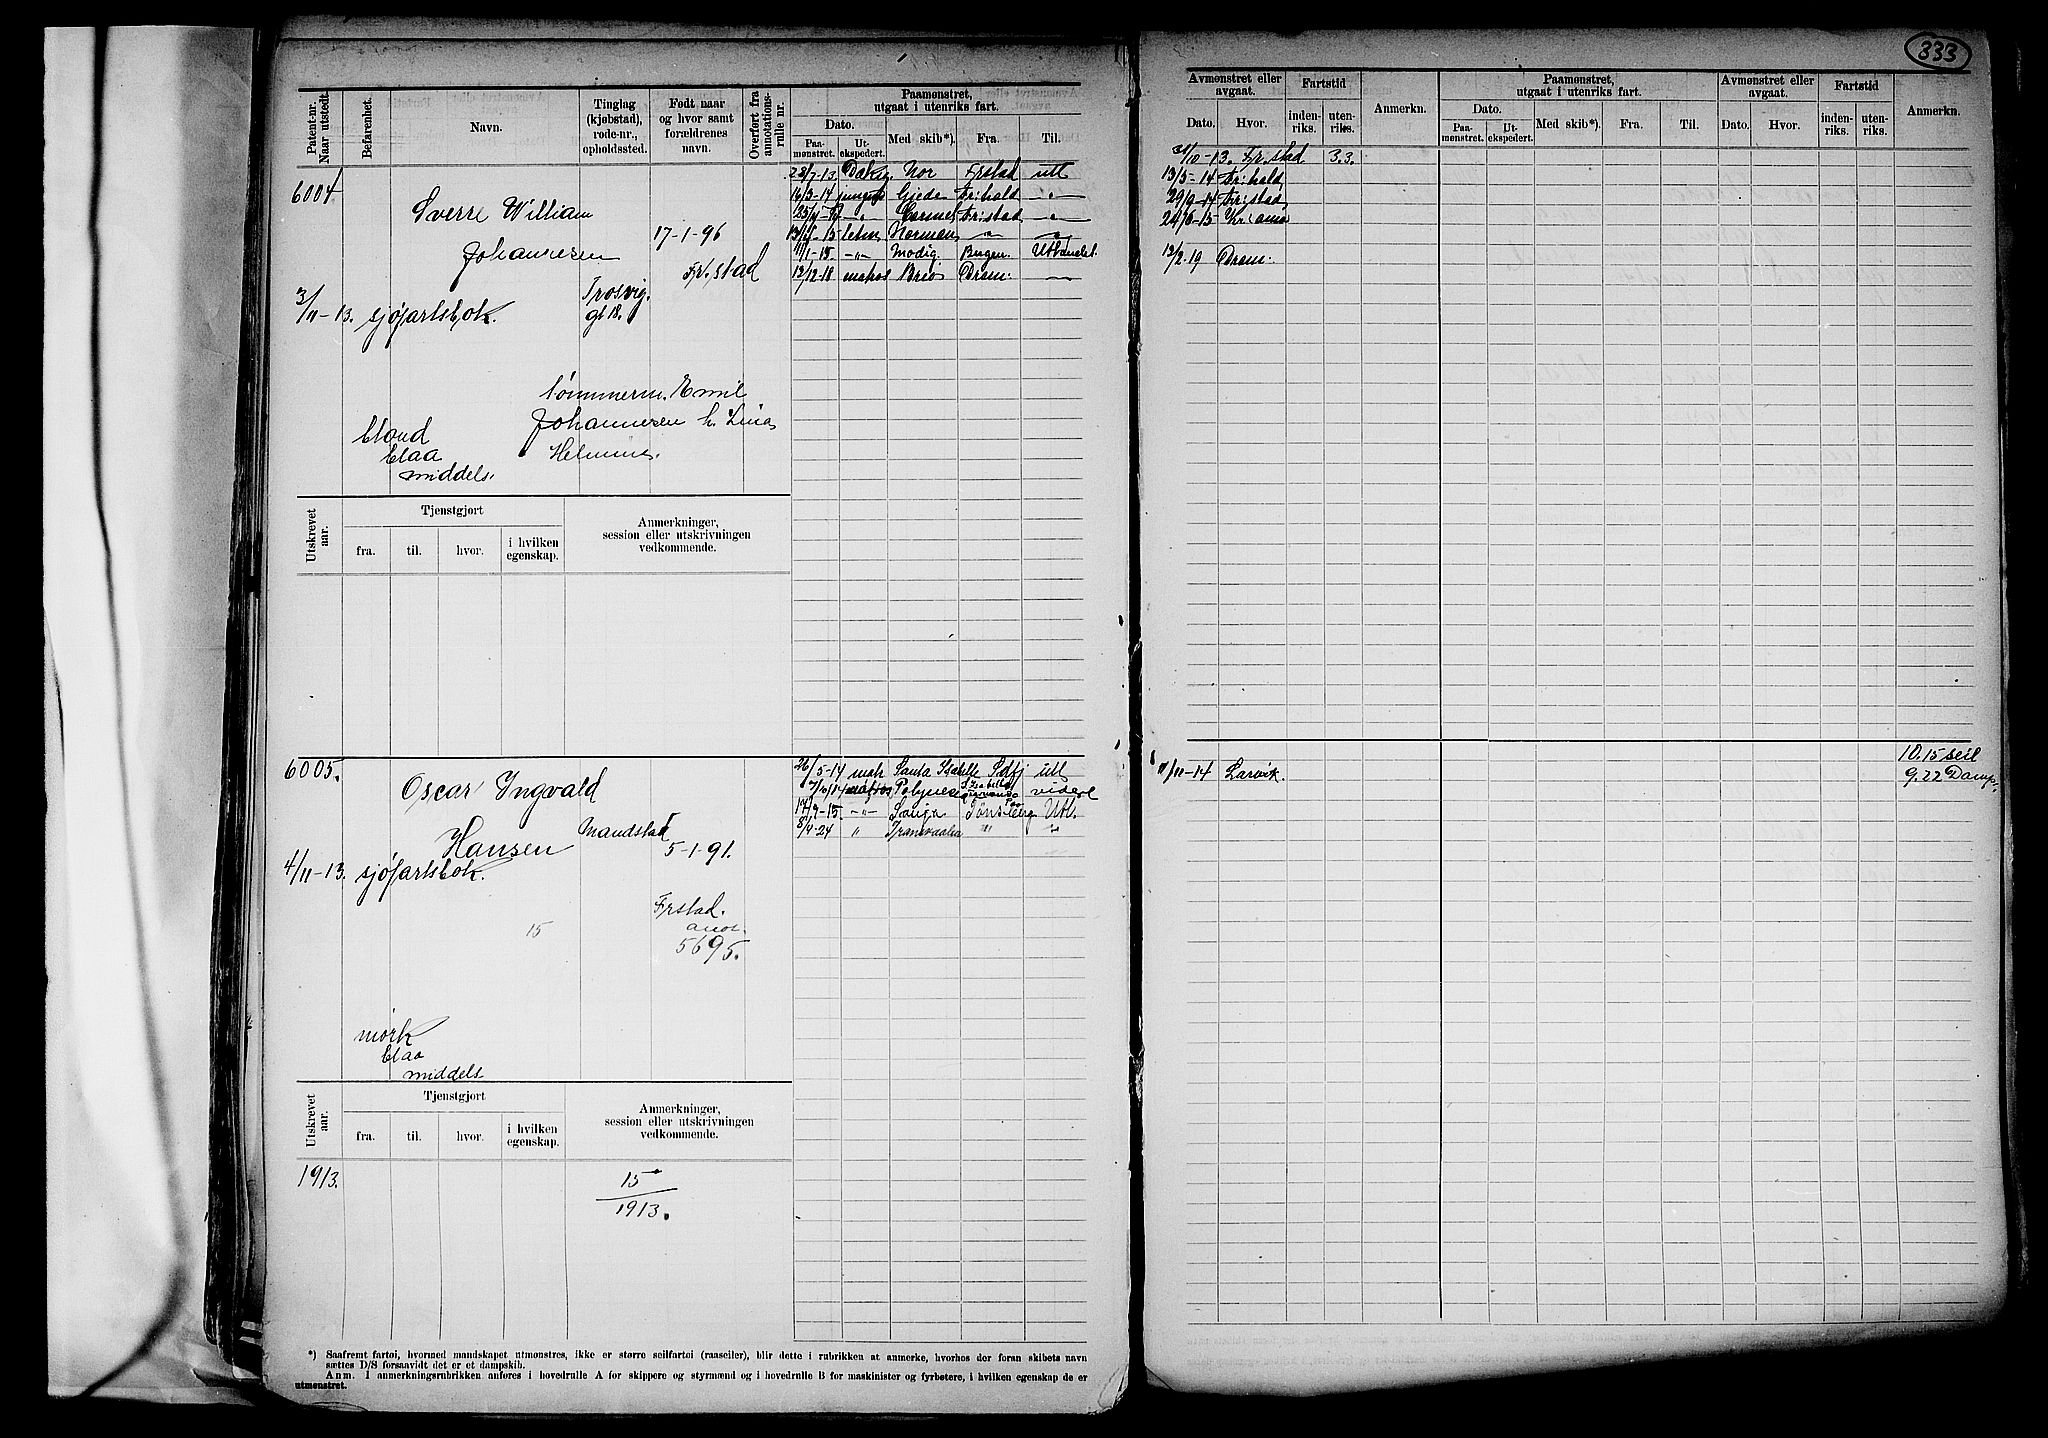 333
Patent-nr. Naar utstedt.
Befarenhet.
Navn.
Tinglag (kjøbstad), rode-nr., opholdssted.
Født naar og hvor samt forældrenes navn.
Overført fra annotationsrulle nr.
Paamønstret, utgaat i utenriks fart.
Dato.
Paamønstret.
Utekspedert.
Med skib*).
Fra.
Til.
Avmønstret eller avgaat.
Dato.
Hvor.
Fartstid
indenriks.
utenriks.
Anmerkn.
Paamønstret, utgaat i utenriks fart.
Dato.
Paamønstret.
Utekspedert.
Med skib*).
Fra.
Til.
Avmønstret eller avgaat.
Dato.
Hvor.
Fartstid
indenriks.
utenriks.
Anmerkn.
6004
Sverre William
Johannesen
17-1-96
Fr.stad
Trosvig.
gt 18.
3/11-13. sjøfartsbok.
tømmerm. Emil
Johannesen h. Lina
blond
blaa
middels.
28/7-13. Nor Frstad utt
16/3-14 Gjeda Fr:hald -"-
Fr:stad -"-
letm. Norman -"-
11/1-15 -"- Modig. Bergen. Uthandel.
12/12-18 matros Brio Dram.
31/10-13. Fr.stad 3.3.
13/5-14 Fr:hald,
29/9-14 Fr:stad,
24/6-15 Kr:ania
13/2-19 Dram.
Utskrevet aar.
Tjenstgjort
fra.
til.
hvor.
i hvilken egenskap.
Anmerkninger, session eller utskrivningen vedkommende.
6005.
Oscar Ingvald
Hansen
5-1-91.
4/11-13. sjøfartsbok.
Frstad.
5695.
15
mørk
blaa
middels
26/5-14 matr Santa Isabelle utt
videre
17/9-15. -"- Tønsberg Utl.
8/9-24 " Transvaalia "" "
11/11-14 Larvik.
10.15 seil
9.22 Damp.
Utskrevet aar.
Tjenstgjort
fra.
til.
hvor.
i hvilken egenskap.
Anmerkninger, session eller utskrivningen vedkommende.
1913.
15
1913.
*) Saafremt fartøi, hvormed mandskapet utmønstres, ikke er større seilfartøi (raaseiler), blir dette i rubrikken at anmerke, hvorhos der foran skibets navn
sættes D/S forsaavidt det er et dampskib.
Anm. I anmerkningsrubrikken anføres i hovedrulle A for skippere og styrmænd og i hovedrulle B for maskinister og fyrbøtere, i hvilken egenskap de er
utmønstret.